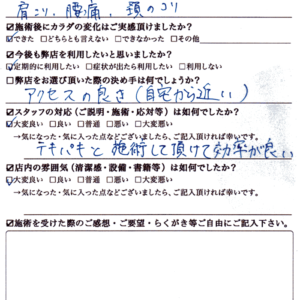 肩こり、腰痛、頚のコリ
☑施術後にカラダの変化はご実感頂けましたか?
☑できた □どちらとも言えない □できなかった □その他
☑今後も弊店を利用したいと思いましたか?
☑定期的に利用したい □症状が出たら利用したい □利用しない
□弊店をお選び頂いた際の決め手は何でしょうか?
アクセスの良さ(自宅から近い)
☑スタッフの対応(ご説明・施術・応対等)は如何でしたか?
☑大変良い □良い □普通 □悪い □大変悪い
→気になった・気に入った点などございましたら、ご記入頂ければ幸いです。
テキパキと施術して頂けて効率が良い
☑店内の雰囲気(清潔感・設備・書籍等)は如何でしたか?
☑大変良い □良い □普通 □悪い □大変悪い
→気になった・気に入った点などございましたら、ご記入頂ければ幸いです。
☑施術を受けた際のご感想・ご要望・らくがき等ご自由にご記入下さい。